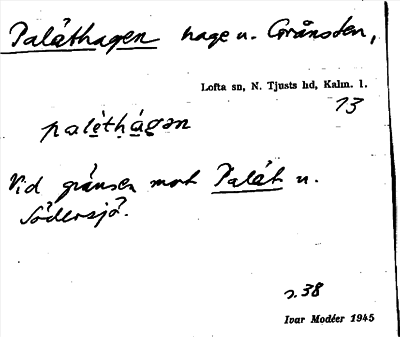 Paláthagen hage u. Grånsten,
Lofta sn, N. Tjusts hd, Kalm. l.
13
paléthágən
Vid gränsen mot Palát u.
Södersjö.
s. 38
Ivar Modéer 1945